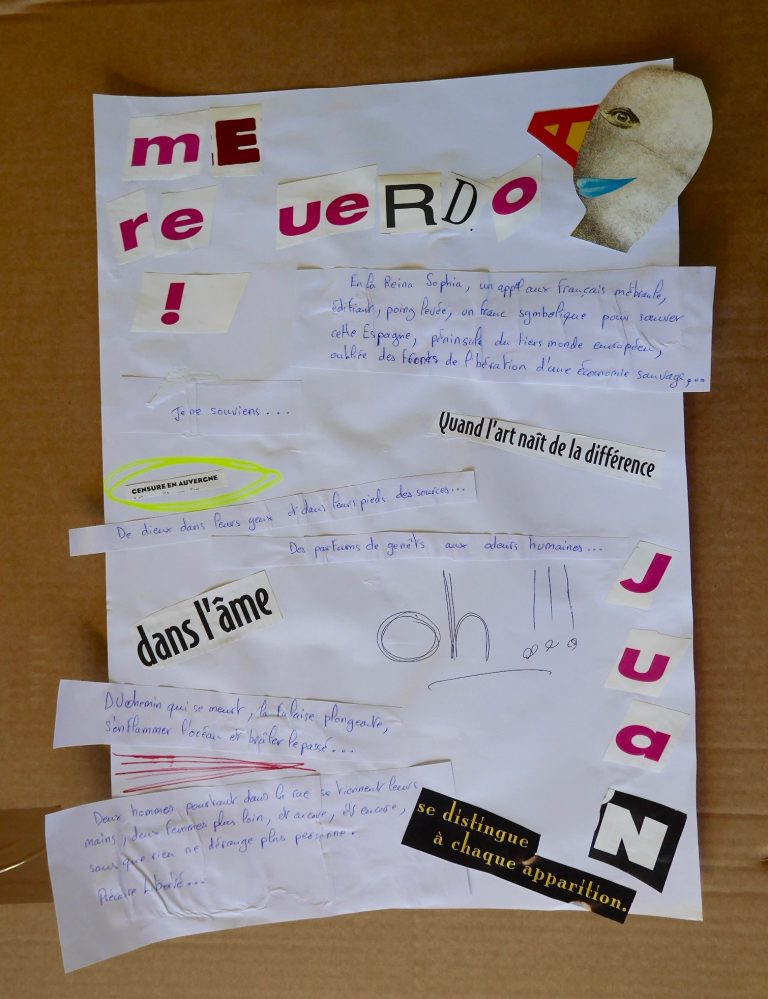 mE
A
re uERDo
!
En la Reina Sophia, un appel aux français m'ébranle,
édifiant, poing levée, un franc symbolique pour sauver
cette Espagne, péninsule du tiers monde européen,
oubliée des fronts de libération d'une économie sauvage...
Je me souviens...
Quand l'art naît de la différence
CENSURE EN AUVERGNE
De dieux dans leurs yeux et dans leurs pieds des sources...
Des parfums de genêts aux odeurs humaines...
J
u
a
N
dans l'âme
oh !!!
Du chemin qui se meurt, la falaise plongeante,
s'enflammer l'océan et brûler le passé...
Deux hommes pourtant dans la rue se tiennent leurs
mains, deux femmes plus loin, et encore, et encore,
sans que rien ne dérange plus personne.
Précaire liberté...
se distingue
à chaque apparition.